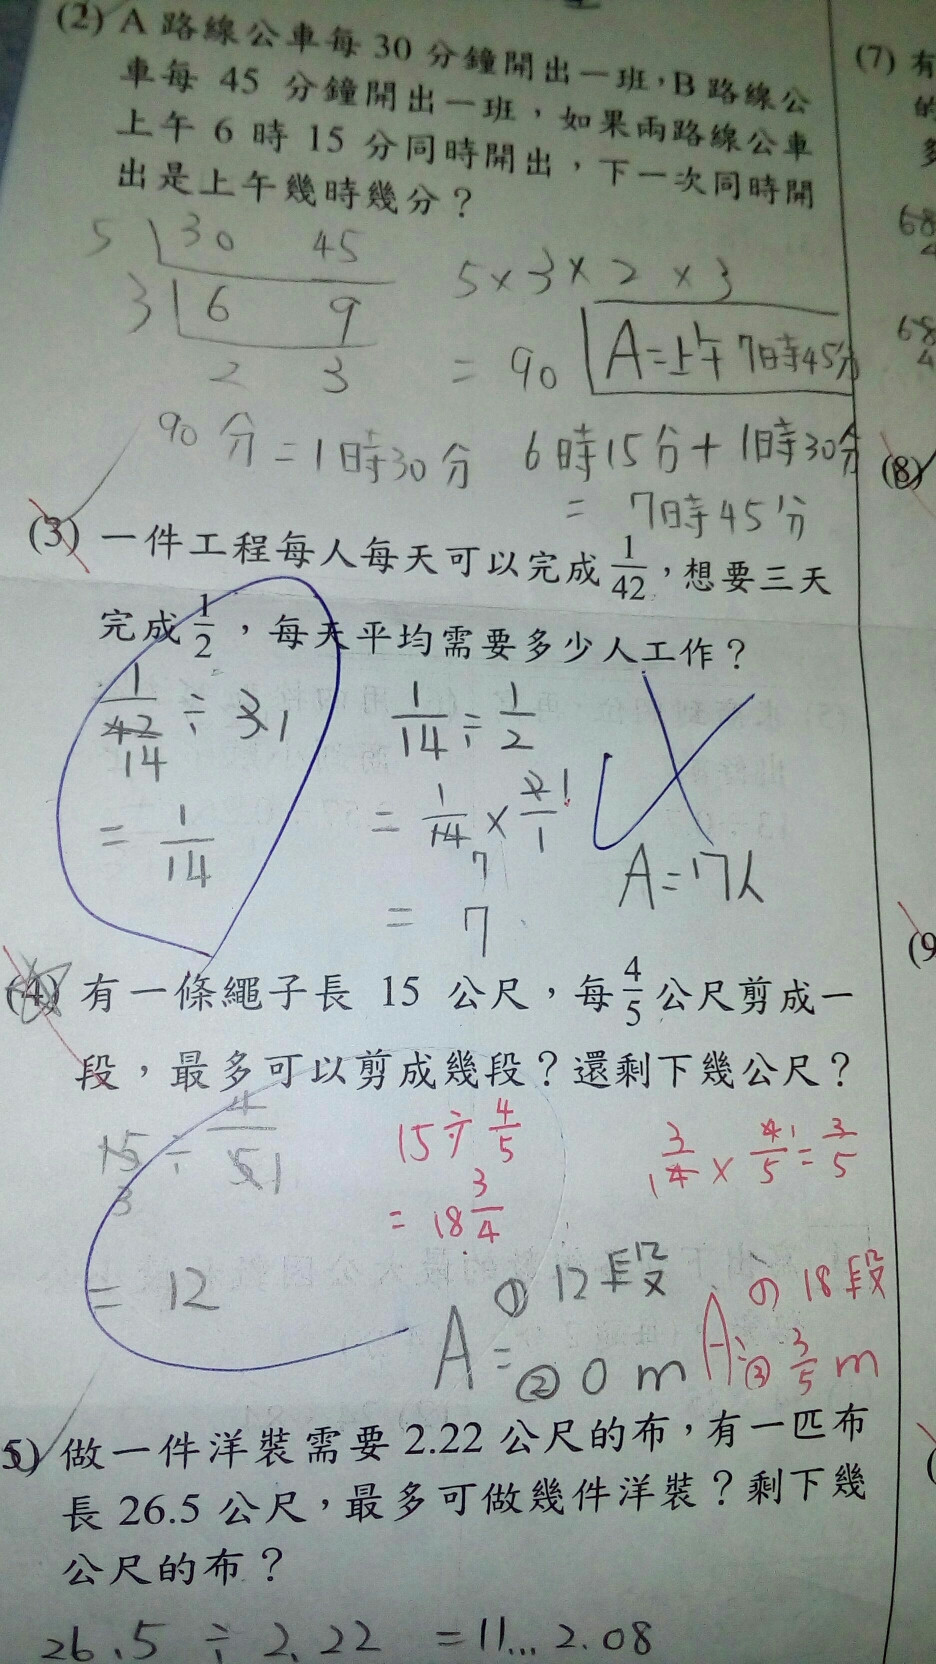 (2) A 路線公車每 30 分鐘開出一班，B 路線公
車每 45 分鐘開出一班，如果兩路線公車
上午 6 時 15 分同時開出，下一次同時開
出是上午幾時幾分？
5 30 45
5×3×2×3
3 6 9
= 90 A=上午 7時45分
2 3
90分=1時30分 6時15分+1時30分
= 7時45分
(3) 一件工程每人每天可以完成 1/42，想要三天
完成 1/2，每天平均需要多少人工作？
1/42 ÷ 3 1 1/14 ÷ 1/2
14
= 1/14 = 1/14 × 2/1 1
7
= 7 A=17人
(4) 有一條繩子長 15 公尺，每 4/5 公尺剪成一
段，最多可以剪成幾段？還剩下幾公尺？
15 ÷ 4/5 1 15÷4/5 3/4 × 4/5 = 3/5
3
= 18 3/4
= 12
A= ① 12段 A= ① 18段
② 0 m ② 3/5 m
5) 做一件洋裝需要 2.22 公尺的布，有一匹布
長 26.5 公尺，最多可做幾件洋裝？剩下幾
公尺的布？
26.5 ÷ 2.22 =11...2.08
(7) 有
的
多
68
4
68
4
(8)
(9